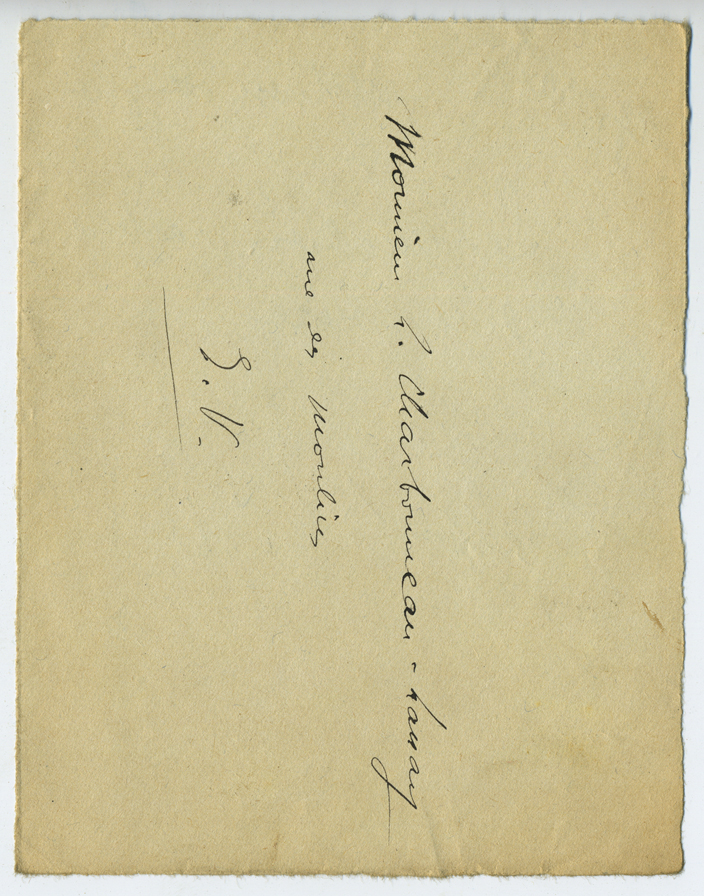 Monsieur L. Charbonneau-Lassay
rue des Moulins
E.V.